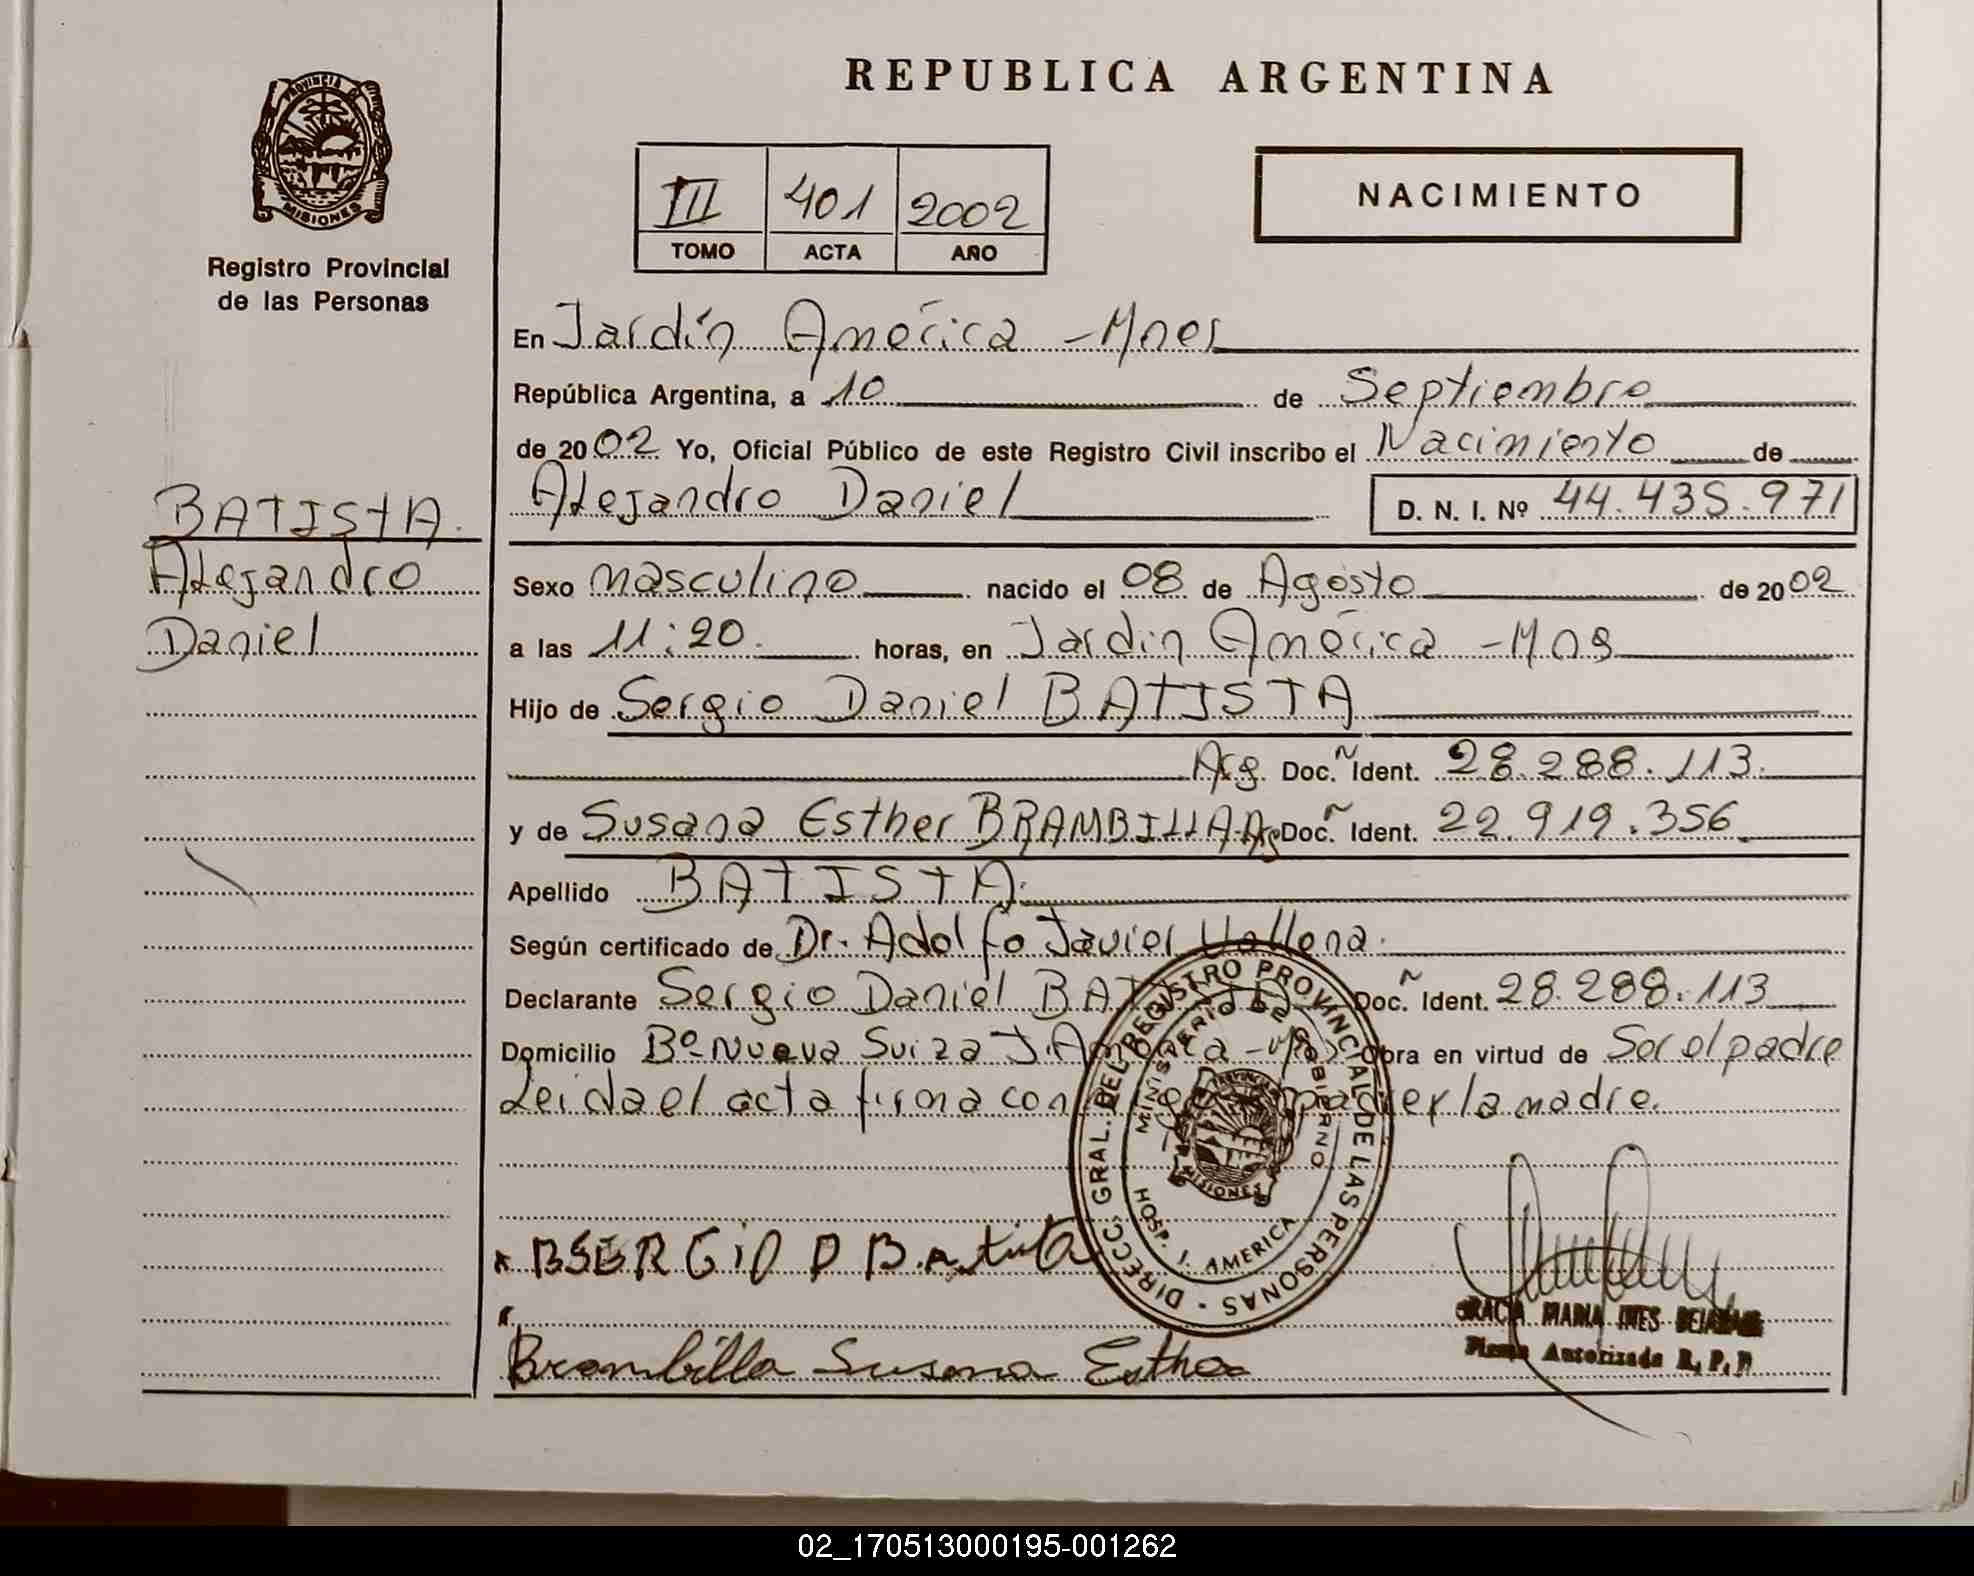 REPUBLICA ARGENTINA
PROVINCIA DE
MISIONES
Registro Provincial
de las Personas
III 401 2002
TOMO ACTA AÑO
NACIMIENTO
En Jardín América - Mnes
República Argentina, a 10 de Septiembre
de 2002 Yo, Oficial Público de este Registro Civil inscribo el Nacimiento de
Alejandro Daniel D. N. I. Nº 44.435.971
BATISTA.
Alejandro
Daniel
Sexo masculino nacido el 08 de Agosto de 2002
a las 11:20. horas, en Jardin América - Mns
Hijo de Sergio Daniel BATISTA
Arg. Doc. Ñ Ident. 28.288.113.
y de Susana Esther BRAMBILLA Arg Doc. Ñ Ident. 22.919.356
Apellido BATISTA.
Según certificado de Dr. Adolfo Javier
Declarante Sergio Daniel Doc. Ñ Ident. 28.288.113
Domicilio Bº Nueva Suiza Obra en virtud de Ser el padre
Leida el acta firma la madre.
DIRECC. GRAL. DEL REGISTRO PROVINCIAL DE LAS PERSONAS
MINISTERIO DE GOBIERNO
MISIONES
HOSP. J. AMERICA
SERGIO D Batista
Brambilla Susana Esther
MARIA INES
Firma Autorizada R. P. P
02_170513000195-001262